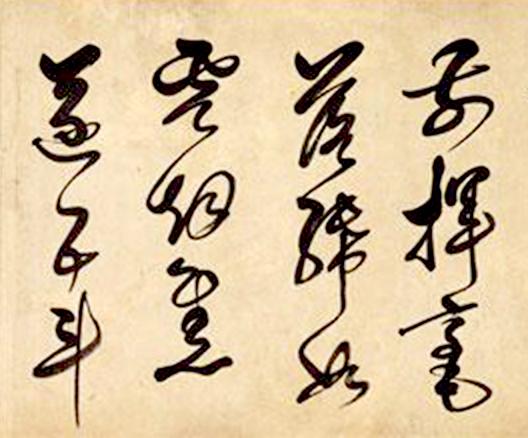 前揮毫
落紙如
雲烟焦
遂五斗